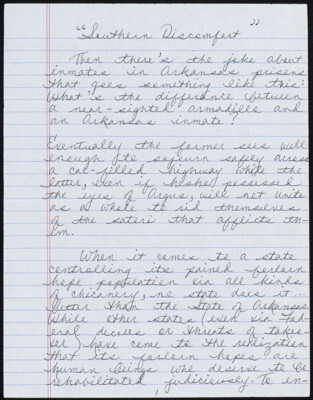 "Southern Discomfort"
Then there's the joke about
inmates in Arkansas prisons
that goes something like this:
What's the difference between
a near-sighted armadillo and
an Arkansas inmate?
Eventually the former sees well
enough to sojourn safely across
a car-filled highway while the
latter, even if he/she possessed
the eyes of Argus, will not unite
as a whole to rid themselves
of the satori that afflicts th-
em.
When it comes to a state
controlling its pained forlorn
hope population via all kinds
of chicanery, no state does it...
better than the State of Arkansas.
While other states (even via Fed-
eral decrees or threats of takeo-
ver) have come to the realization
that its forlorn hopes are
human beings who deserve to be
rehabilitated, judiciously. To en-